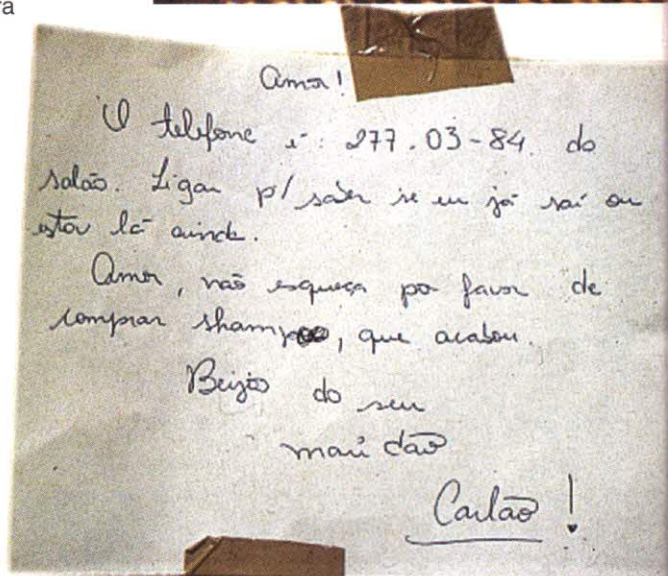 ra
Amor!
O telefone é: 277.03-84. do
salão. Ligar p/ saber se eu já saí ou
estou lá ainda.
Amor, não esqueça por favor de
comprar shampoo, que acabou.
Beijão do seu
mari dão
Carlão!